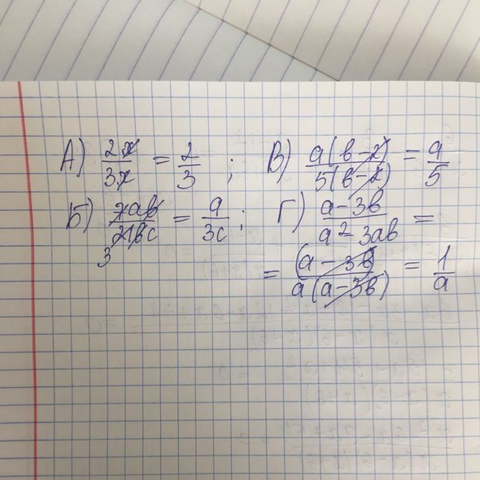 А) 2x/3x = 2/3 ; В) a(b-2)/5(b-2) = a/5
Б) 7ab/21bc = a/3c ; Г) a-3b/a²-3ab =
= (a-3b)/a(a-3b) = 1/a